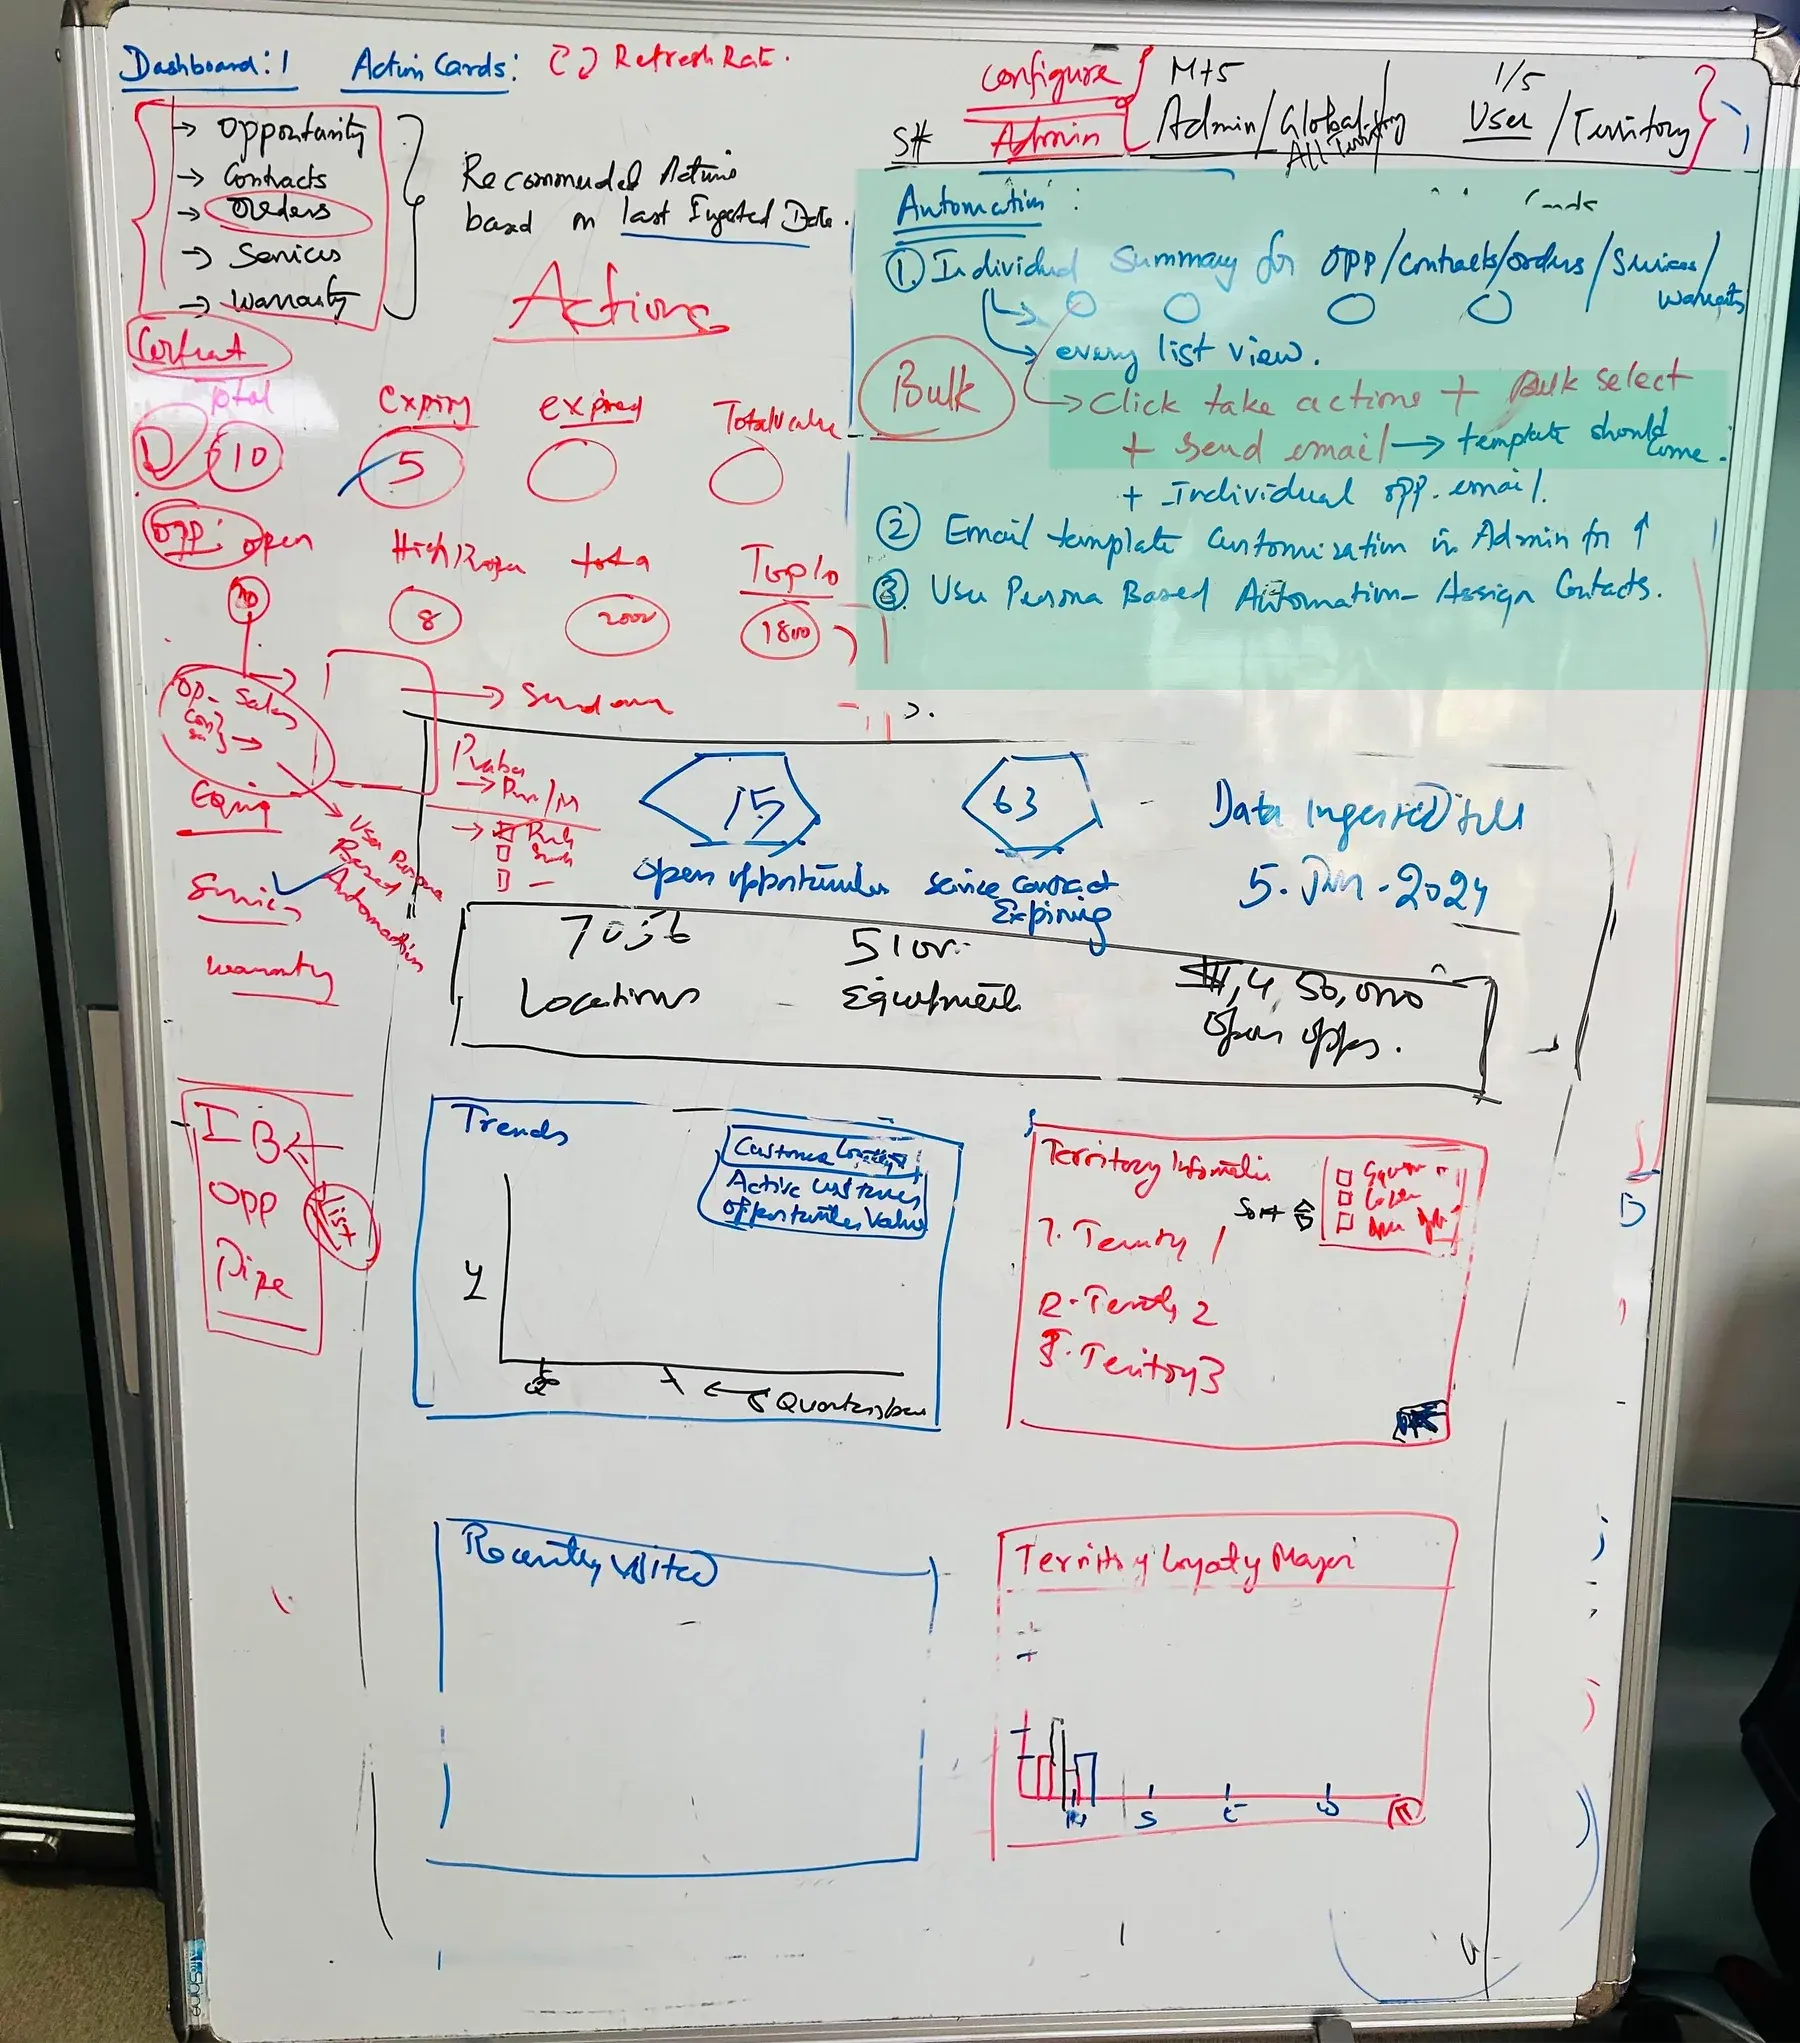 Dashboard: 1 Action Cards: Refresh Rate.
→ Opportunity
→ Contracts
→ Orders
→ Services
→ Warranty
Recommended Actions
based on last Ingested Date.
Actions
Configure
Admin
S#
M+5
Admin/Global
All
1/5
User / Territory
Automation:
① Individual Summary for OPP/Contracts/orders/Services/
Warranty
→ every list view.
Bulk
→ Click take actions + Bulk select
+ Send email → template should come.
+ Individual opp. email.
② Email template Customization in Admin for ↑
③ User Persona Based Automation - Assign Contacts.
Total expiry expired Total Value
D 10 5
OPP: open High Total Top 10
8 1800
OP- Sales
Equip
Service
Warranty
User Persona
Based
Automation
15
Open opportunities
63
Service contract
Expiring
Data Ingested till
5. Jun. 2024
Locations
Equipment
4,50,000
Open opps.
IB
OPP
Pipe
List
Trends
Customer
Active customers
opportunities value
Y
X
Territory Information
Sort
1. Territory 1
2. Territory 2
3. Territory 3
Recently visited
Territory Loyalty
S